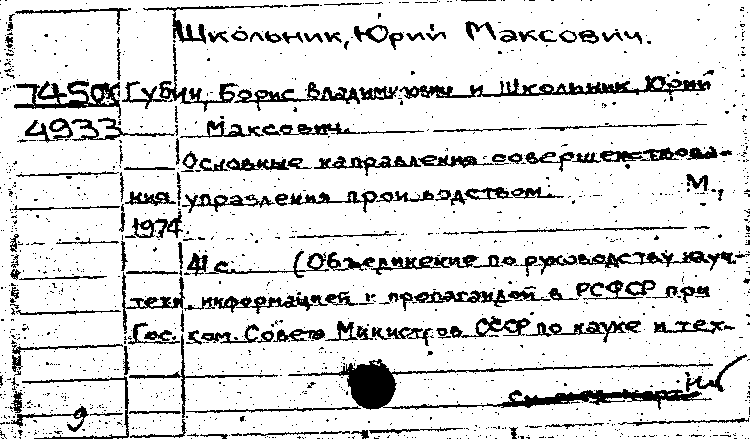 Школьник, Юрий Максович.
7450к Губин, Борис Владимирович и Школьник, Юрий
4933 Максович.
Основные направления совершенствова-
ния управления производством. М.,
1974.
41 с. (Объединение по руководству науч.-
техн. информацией и пропагандой в РСФСР при
Гос. ком. Совета Министров СССР по науке и тех-
9